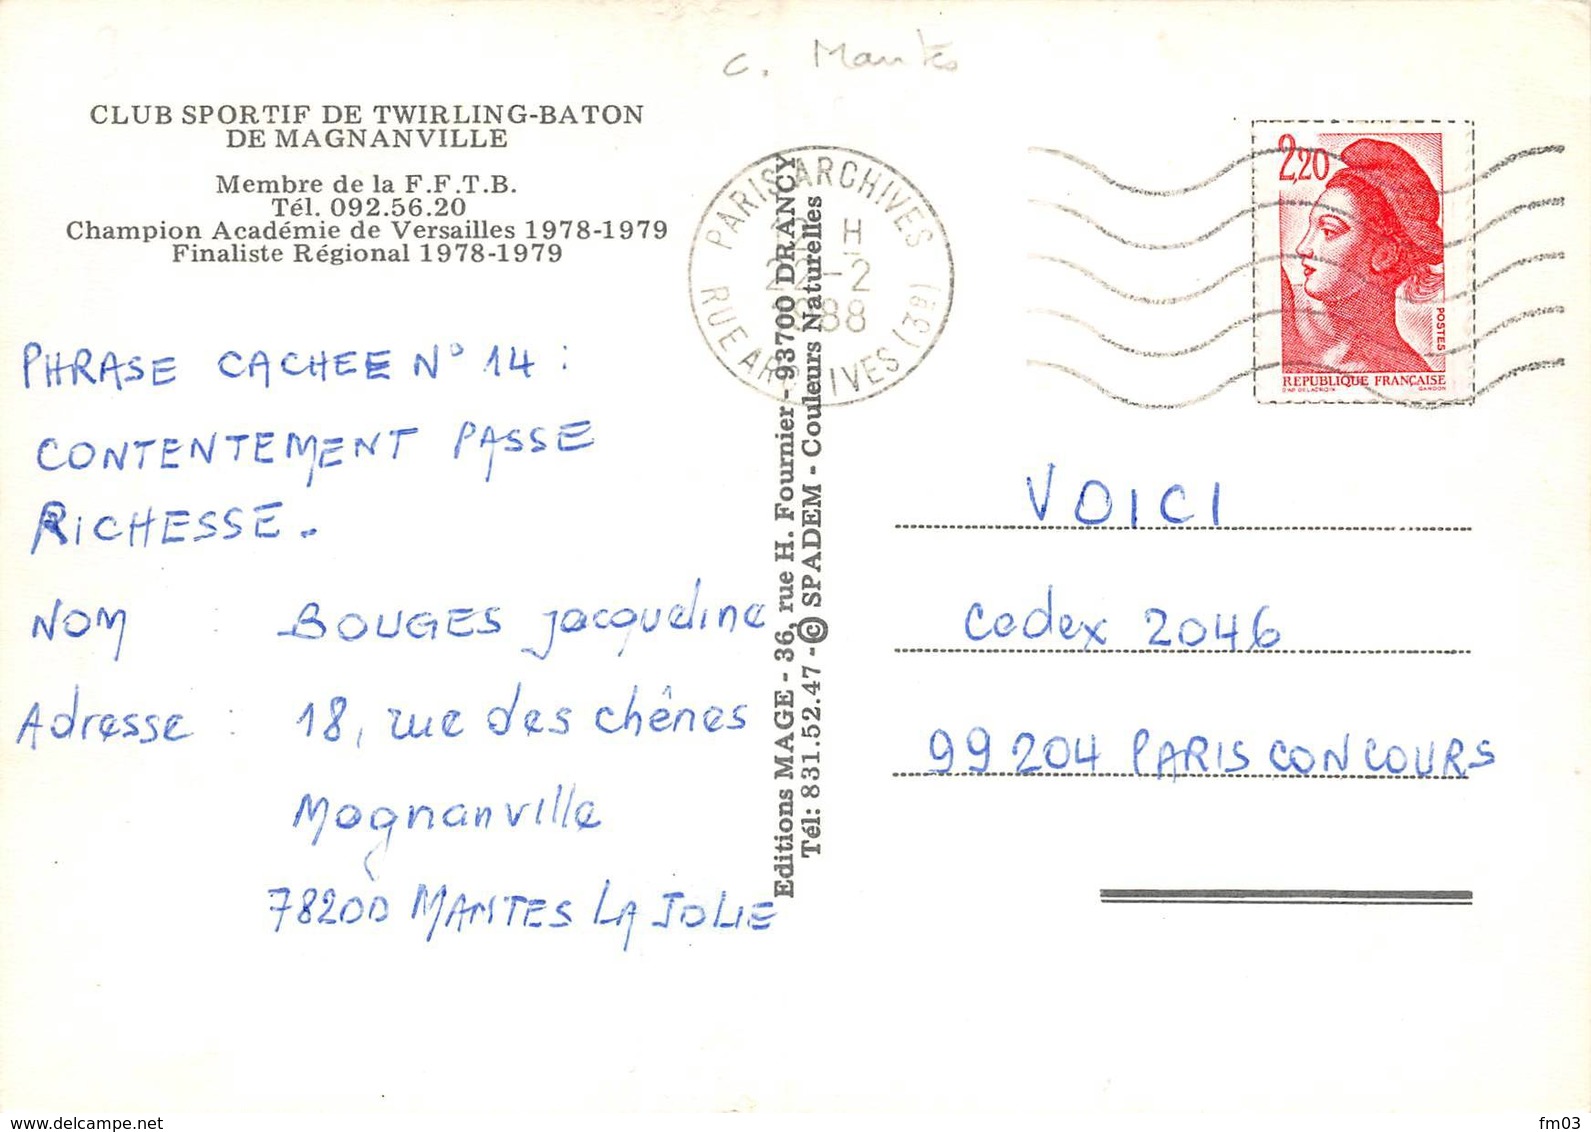 c. Mantes
CLUB SPORTIF DE TWIRLING-BATON
DE MAGNANVILLE
Membre de la F.F.T.B.
Tél. 092.56.20
Champion Académie de Versailles 1978-1979
Finaliste Régional 1978-1979
PHRASE CACHEE N° 14 :
CONTENTEMENT PASSE
RICHESSE.
NOM : BOUGES Jacqueline
Adresse : 18, rue des chênes
Magnanville
78200 MANTES LA JOLIE
Editions MAGE - 36, rue H. Fournier - 93700 DRANCY
Tél: 831.52.47 - © SPADEM - Couleurs Naturelles
PARIS ARCHIVES
H
22-2
1988
RUE ARCHIVES (3e)
2,20
POSTES
REPUBLIQUE FRANÇAISE
D'AP. DELACROIX GANDON
VOICI
Cedex 2046
99204 PARIS CONCOURS
www.delcampe.net
fm03